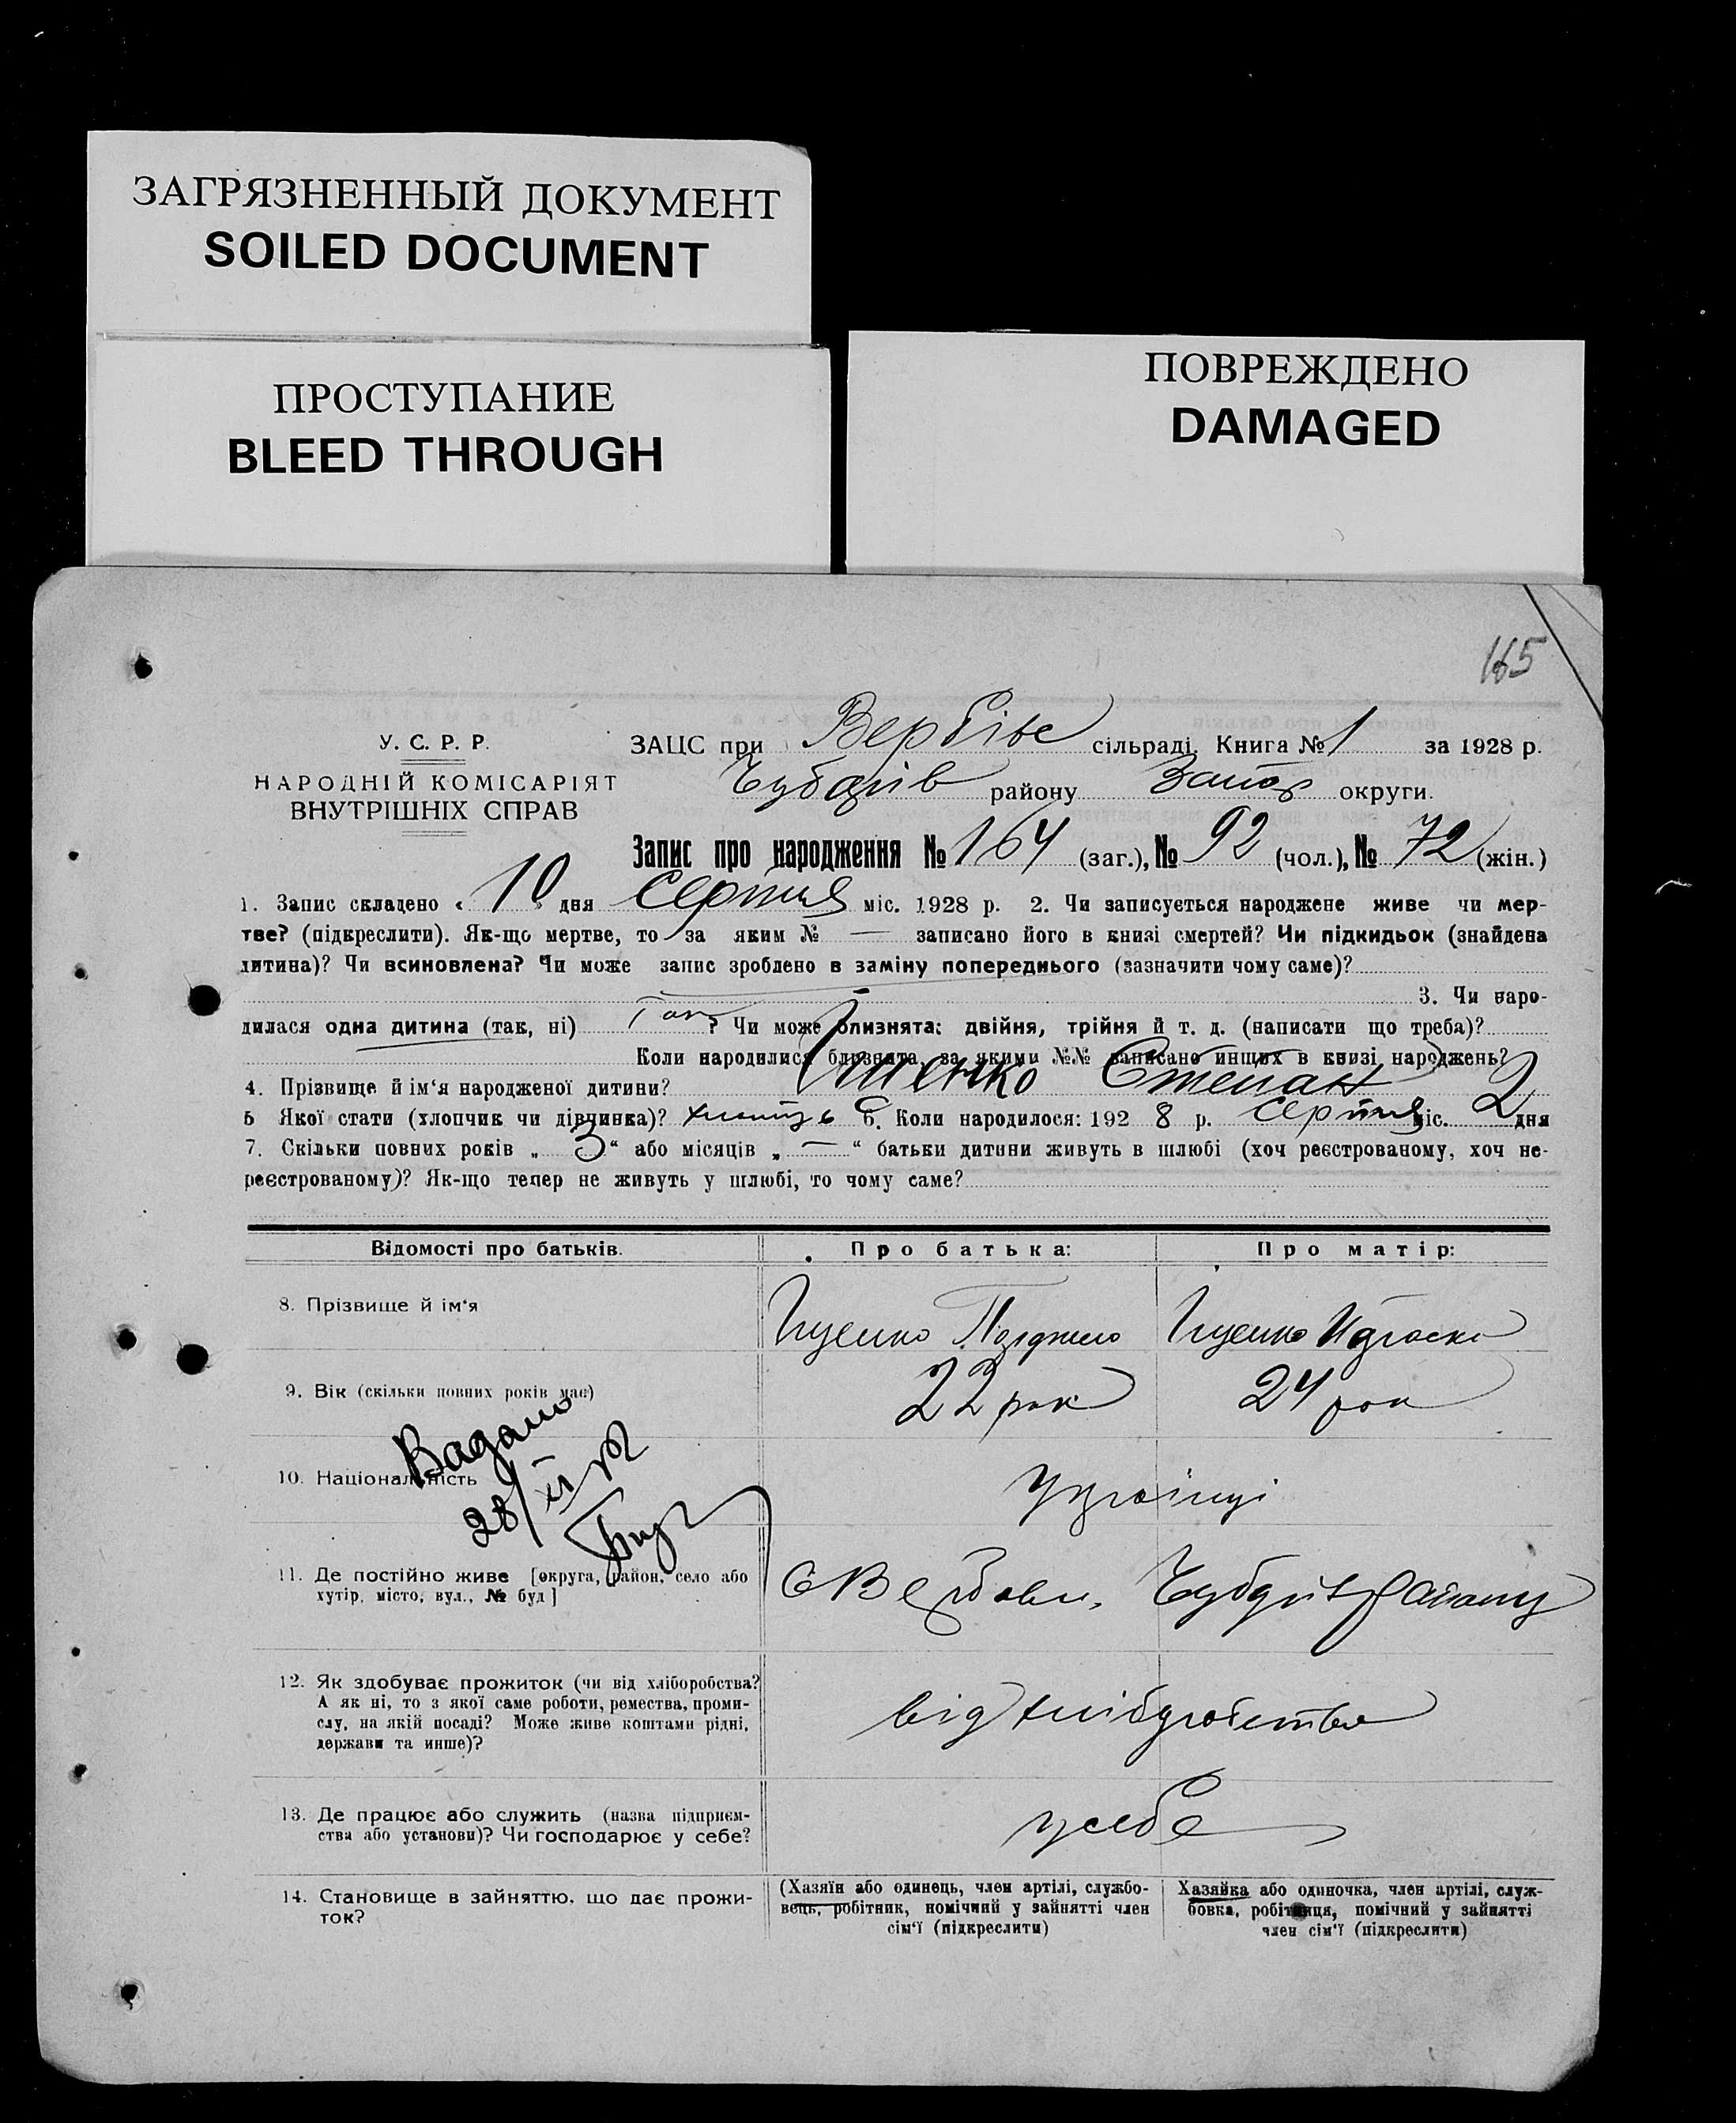 ЗАГРЯЗНЕННЫЙ ДОКУМЕНТ
SOILED DOCUMENT
ПРОСТУПАНИЕ
BLEED THROUGH
ПОВРЕЖДЕНО
DAMAGED
165
У. С. Р. Р.
НАРОДНІЙ КОМІСАРІЯТ
ВНУТРІШНІХ СПРАВ
ЗАЦС при Вербівс сільраді. Книга № 1 за 1928 р.
району Запор округи.
Запис про народження № 164 (заг.), № 92 (чол.), № 72 (жін.)
1. Запис складено « 10 » дня Серпня міс. 1928 р. 2. Чи записується народжене живе чи мер-
тве? (підкреслити). Як-що мертве, то за яким № — записано його в книзі смертей? Чи підкидьок (знайдена
дитина)? Чи всиновлена? Чи може запис зроблено в заміну попереднього (зазначити чому саме)?
3. Чи наро-
дилася одна дитина (так, ні) Так ? Чи може близнята: двійня, трійня й т. д. (написати що треба)?
Коли народилися близнята, за якими №№ записано инших в книзі народжень?
4. Прізвище й ім‘я народженої дитини? Іщенко Степан
5 Якої стати (хлопчик чи дівчинка)? хлопець 6. Коли народилося: 192 8 р. Серпня міс. 2 дня
7. Скільки повних років „ 3 “ або місяців „ — “ батьки дитини живуть в шлюбі (хоч реєстрованому, хоч не-
реєстрованому)? Як-що тепер не живуть у шлюбі, то чому саме?
Відомості про батьків. Про батька: Про матір:
8. Прізвище й ім‘я Іщенко Іщенко
9. Вік (скільки повних років має) 22 рок 24 рок
10. Національність Українці
28/
11. Де постійно живе [округа, район, село або
хутір, місто, вул., № буд]
С Вербове, району
12. Як здобуває прожиток (чи від хліборобства?
А як ні, то з якої саме роботи, ремества, проми-
слу, на якій посаді? Може живе коштами рідні,
держави та инше)?
від хліборобства
13. Де працює або служить (назва підприєм-
ства або установи)? Чи господарює у себе?
у себе
14. Становище в зайняттю, що дає прожи-
ток?
(Хазяїн або одинець, член артілі, службо-
вець, робітник, помічний у зайнятті член
сім‘ї (підкреслити)
Хазяйка або одиночка, член артілі, служ-
бовка, робітниця, помічний у зайнятті
член сім‘ї (підкреслити)